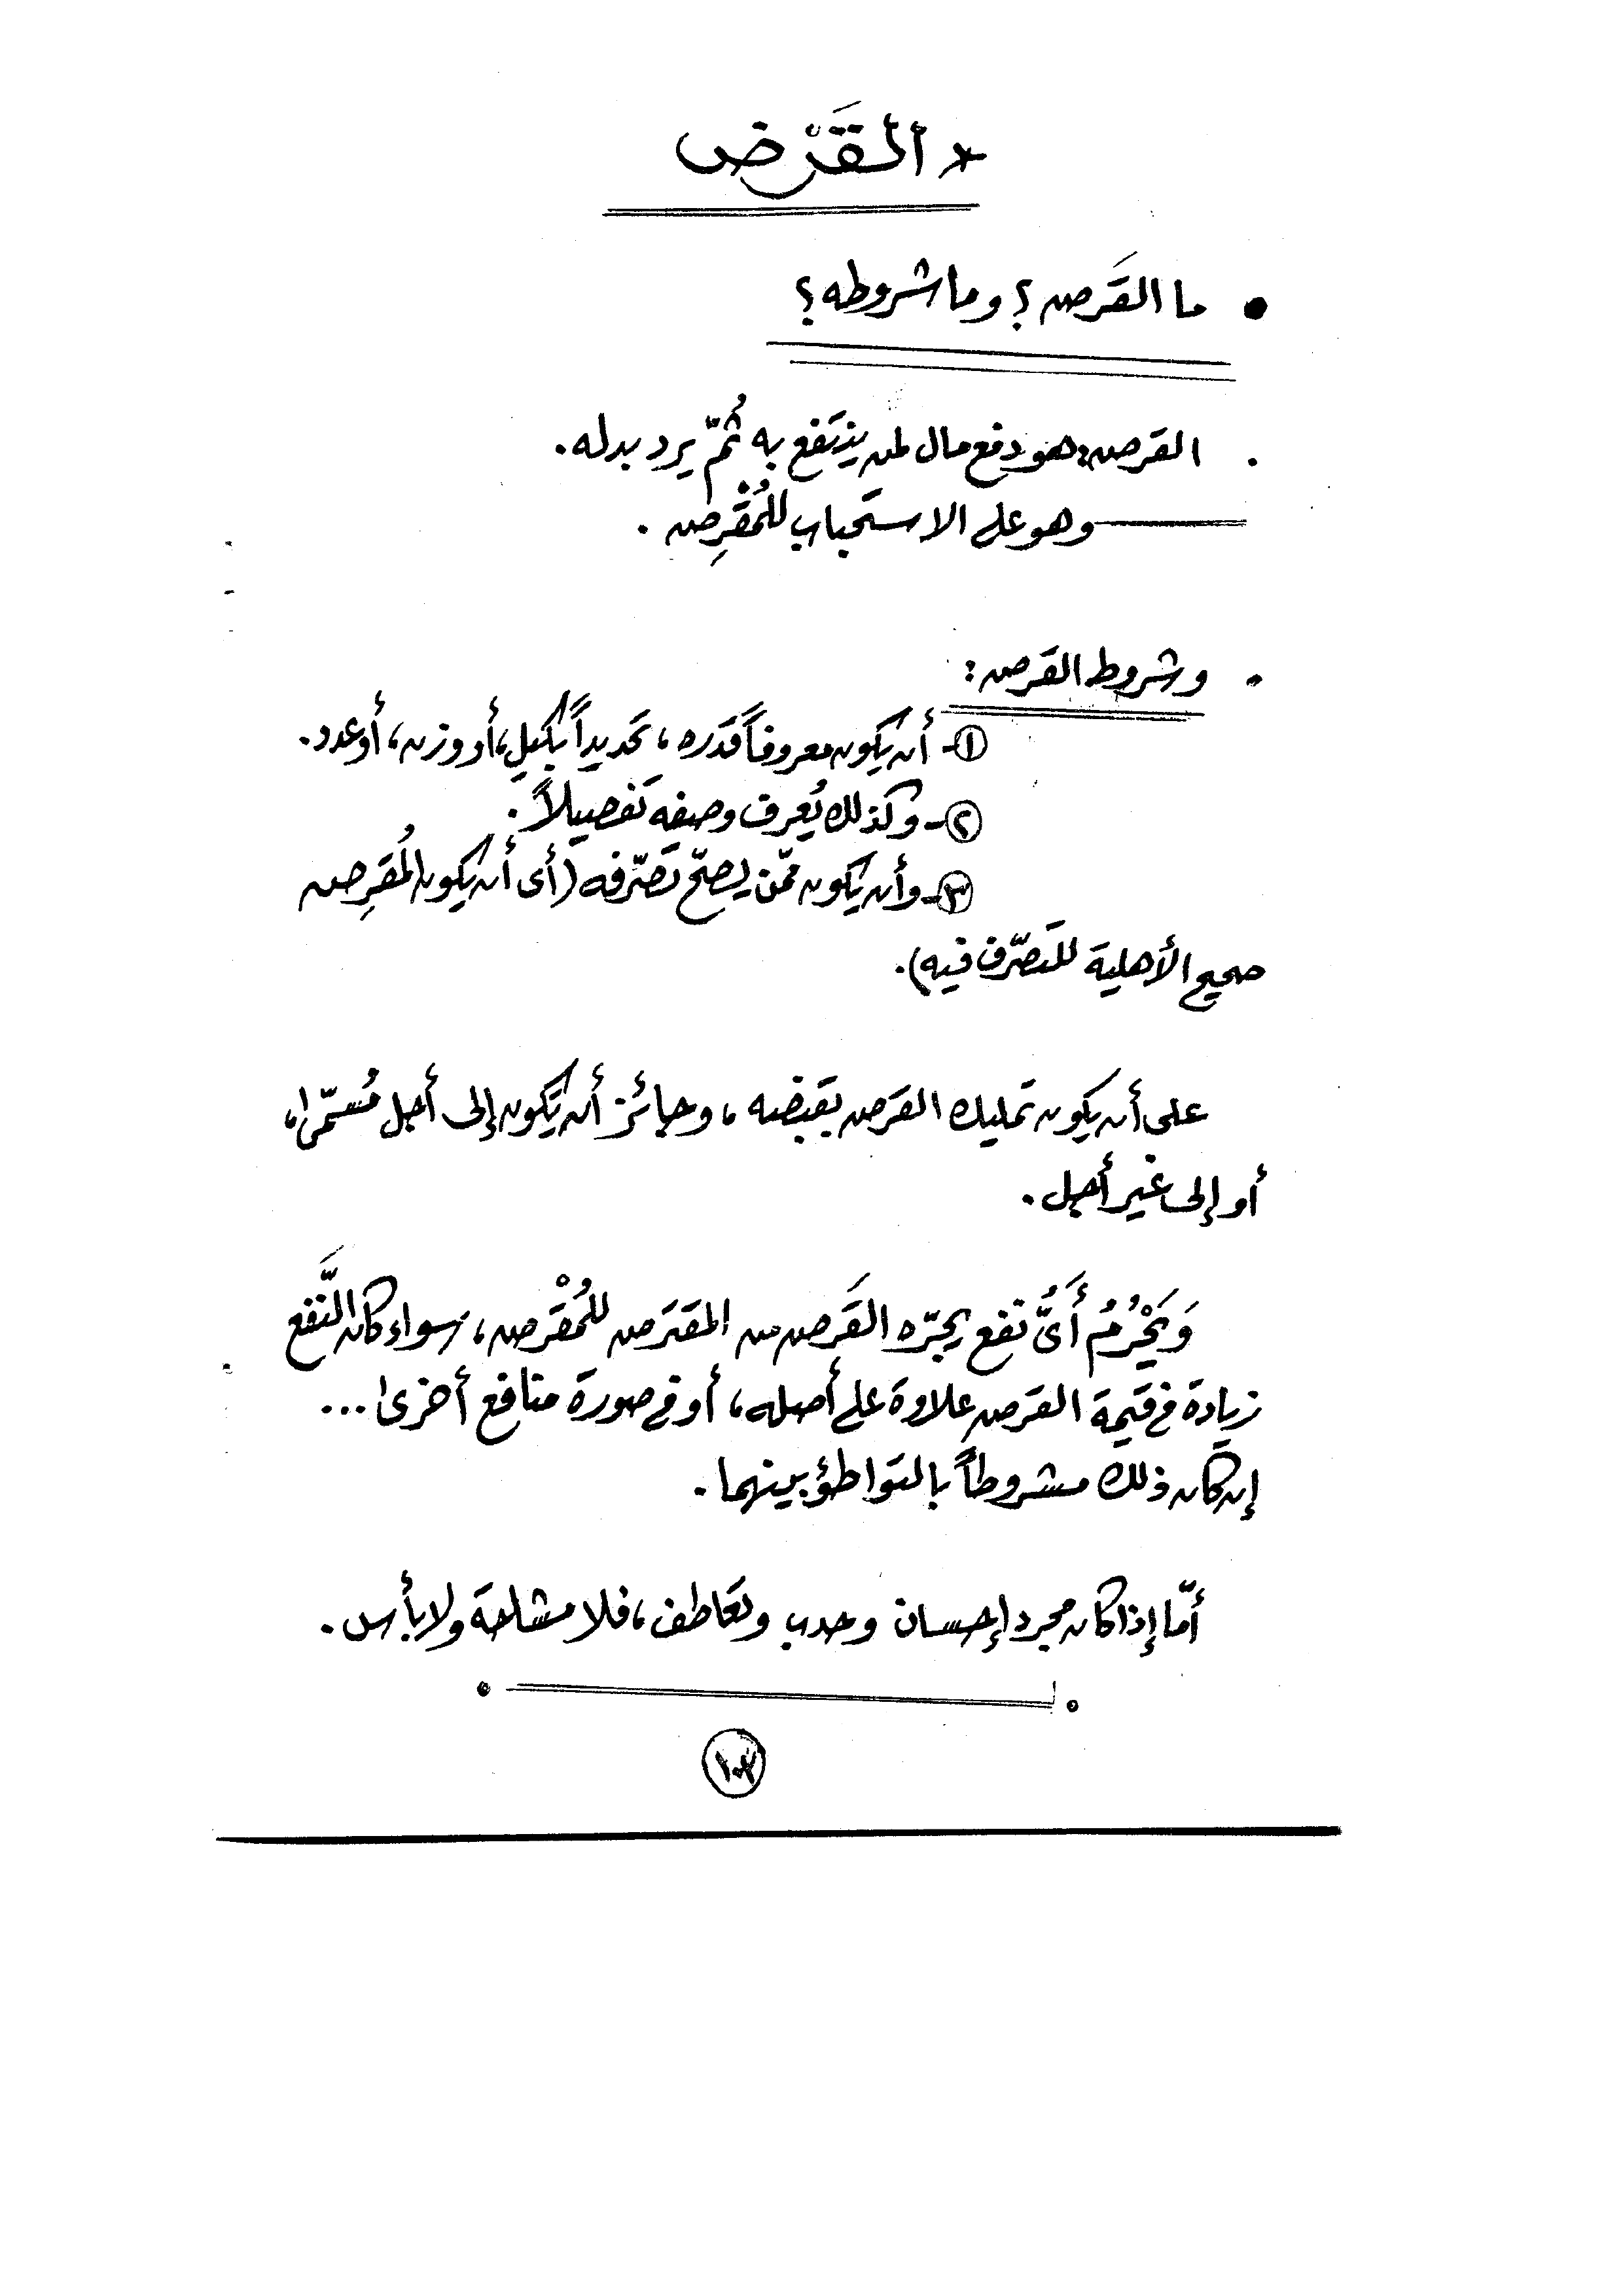 * القَرْض
• ما القَرض؟ وما شروطه؟
. القرض: هو دفع مال لمن ينتَفع به ثُمّ يرد بدله.
وهو على الاستحباب للمُقْرِض.
. وشروط القَرض:
①- أن يَكون معروفاً قَدَره، تَحديداً بكَيلٍ، أو وزن، أو عدد.
②- وكذلك يُعرف وصفه تَفصيلاً.
③- وأن يَكون ممّن يصحّ تَصَرّفه (أى أن يَكون المُقرِض
صحيح الأهلية للتَصَرّف فيه).
على أن يكون تَمليك القَرض بقَبضه، وجائز أن يَكون إلى أجل مُسَمّى،
أو إلى غير أجل.
وَيَحْرُمُ أَىُّ نَفع يجرّه القَرض من المقتَرض للمُقْرض، سواء كان النَّفع
زيادة فى قيمة القرض علاوة على أصله، أو فى صورة منافع أخرى...
إن كان ذلك مشروطاً بالتواطؤ بينهما.
أمّا إذا كان مجرد إحسان وحدب وتعَاطف، فلا مشاحة ولا بأس.
١٠٣